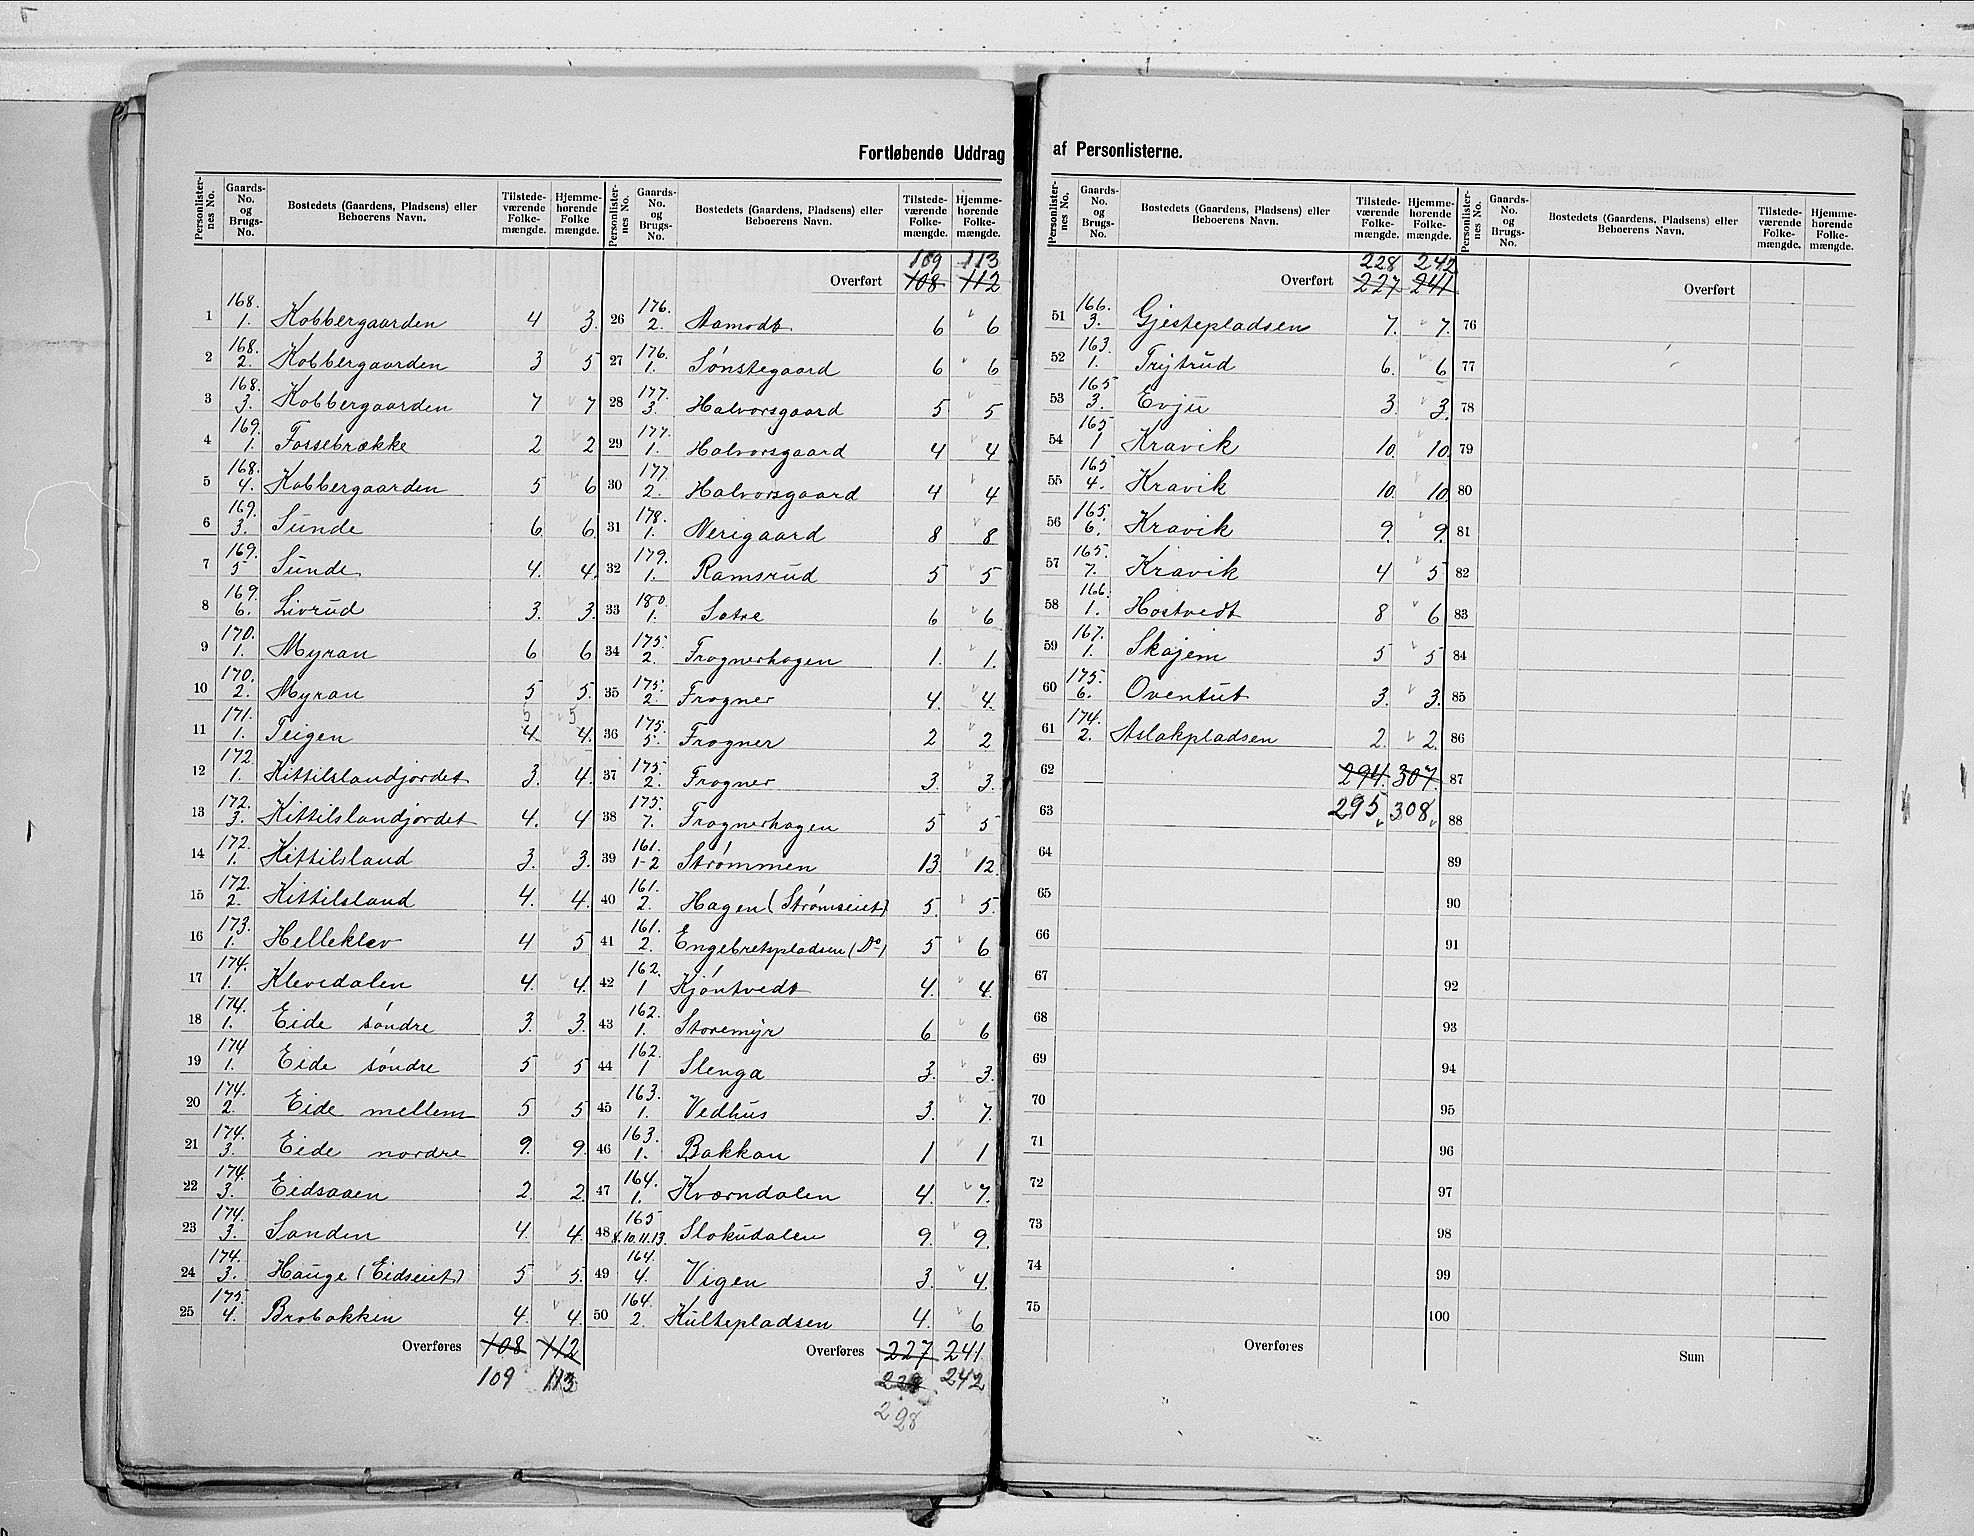 Fortløbende Uddrag af Personlisterne.
Personlisternes No. | Gaards-No. og Brugs-No. | Bostedets (Gaardens, Pladsens) eller Beboerens Navn. | Tilstedeværende Folkemængde. | Hjemmehørende Folkemængde.
1 | 168. 1. | Kobbergaarden | 4 | 3.
2 | 168. 2. | Kobbergaarden | 3 | 5
3 | 168. 3. | Kobbergaarden | 7 | 7
4 | 169. 1. | Fossebrække | 2 | 2
5 | 168. 4. | Kobbergaarden | 5 | 6
6 | 169. 3. | Sunde | 6 | 6.
7 | 169. 5 | Sunde | 4. | 4.
8 | 169. 6. | Livrud | 3. | 3.
9 | 170. 1. | Myran | 6 | 6
10 | 170. 2. | Myran | 5 | 5.
5 5
11 | 171. 1. | Teigen | 4. | 4.
12 | 172. 1. | Kittilslandjordet | 3. | 4.
13 | 172. 3. | Kittilslandjordet | 4. | 4
14 | 172. 1. | Kittilsland | 3. | 3.
15 | 172. 2. | Kittilsland | 4. | 4.
16 | 173. 1. | Helleklev | 4 | 5
17 | 174. 1. | Klevedalen | 4. | 4.
18 | 174. 1. | Eide søndre | 3. | 3.
19 | 174 1. | Eide søndre | 5 | 5
20 | 174. 2. | Eide mellem | 5 | 5
21 | 174. 3. | Eide nordre | 9. | 9.
22 | 174. 3. | Eidsaaen | 2. | 2.
23 | 174. 3. | Sanden | 4. | 4.
24 | 174. 3. | Hauge (Eidseiet) | 5 | 5.
25 | 175. 4. | Brobakken | 4. | 4.
Overføres 108 112
109 113
Personlisternes No. | Gaards-No. og Brugs-No. | Bostedets (Gaardens, Pladsens) eller Beboerens Navn. | Tilstedeværende Folkemængde. | Hjemmehørende Folkemængde.
109 113
Overført 108 112
26 | 176. 2. | Aamodt | 6 | 6
27 | 176. 1. | Sønstegaard | 6 | 6
28 | 177. 3. | Halvorsgaard | 5 | 5
29 | 177. 1. | Halvorsgaard | 4 | 4
30 | 177 2. | Halvorsgaard | 4 | 4
31 | 178. 1. | Nerigaard | 8 | 8
32 | 179. 1. | Ramsrud | 5 | 5
33 | 180. 1. | Satre | 6 | 6
34 | 175. 2. | Frognerhagen | 1. | 1.
35 | 175. 2. | Frogner | 4. | 4.
36 | 175. 5. | Frogner | 2 | 2
37 | 175. 2. | Frogner | 3. | 3.
38 | 175. 7. | Frognerhagen | 5 | 5
39 | 161. 1-2 | Strømmen | 13. | 12.
40 | 161. 2. | Hagen (Strømseiet) | 5. | 5.
41 | 161. 2. | Engebretspladsen (Do) | 5 | 6
42 | 162. 1 | Kjøntvedt | 4. | 4.
43 | 162. 1. | Storemyr | 6 | 6
44 | 162. 1 | Slenga | 3. | 3.
45 | 163. 1. | Vedhus | 3. | 7.
46 | 163. 1. | Bakkan | 1 | 1
47 | 164. 1. | Kværndalen | 4. | 7.
48 | 165 8.10.11.13. | Slokudalen | 9. | 9.
49 | 164. 4. | Vigen | 3. | 4.
50 | 164. 2. | Kultepladsen | 4. | 6
Overføres 227 241
242
228
Personlisternes No. | Gaards-No. og Brugs-No. | Bostedets (Gaardens, Pladsens) eller Beboerens Navn. | Tilstedeværende Folkemængde. | Hjemmehørende Folkemængde.
228 242
Overført 227 241
51 | 166. 3. | Gjestepladsen | 7. | 7.
52 | 163. 1. | Trytrud | 6. | 6
53 | 165 3. | Evju | 3 | 3.
54 | 165 1 | Kravik | 10. | 10.
55 | 165 4. | Kravik | 10. | 10.
56 | 165. 6. | Kravik | 9. | 9.
57 | 165. 7. | Kravik | 4 | 5
58 | 166. 1. | Hostvedt | 8 | 6
59 | 167. 1. | Skajem | 5 | 5
60 | 175. 6. | Oventut | 3. | 3.
61 | 174. 2. | Aslakpladsen | 2. | 2.
62 | 294. | 307.
63 | 295. | 308.
64
65
66
67
68
69
70
71
72
73
74
75
Overføres
Personlisternes No. | Gaards-No. og Brugs-No. | Bostedets (Gaardens, Pladsens) eller Beboerens Navn. | Tilstedeværende Folkemængde. | Hjemmehørende Folkemængde.
Overført
76
77
78
79
80
81
82
83
84
85
86
87
88
89
90
91
92
93
94
95
96
97
98
99
100
Sum